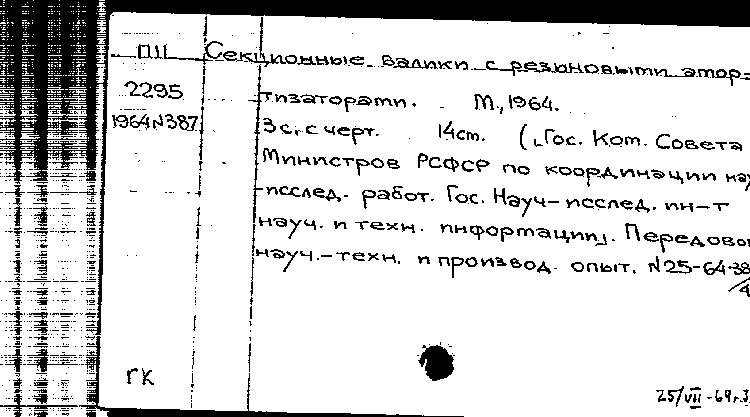 ПII Секционные валики с резиновыми амор-
2295 тизаторами. М., 1964.
1964 N387 3 с. с черт. 14 cm. (Гос. Ком. Совета
Министров РСФСР по координации нау
-исслед. работ. Гос. Науч-исслед. ин-т
науч. и техн. информации). Передовой
науч.-техн. и производ. опыт. N25-64-38
/4
ГК
25/VII-69г.